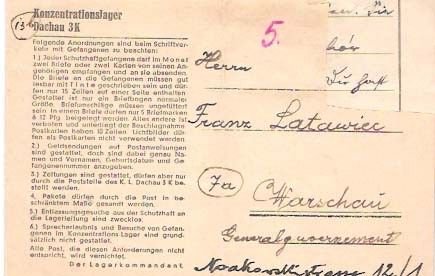 Konzentrationslager
Dachau 3K
Folgende Anordnungen sind beim Schriftver-
kehr mit Gefangenen zu beachten:
1.) Jeder Schutzhaftgefangene darf im Monat
zwei Briefe oder zwei Karten von seinen An-
gehörigen empfangen und an sie absenden.
Die Briefe an die Gefangenen müssen gut
lesbar mit Tinte geschrieben sein und dür-
fen nur 15 Zeilen auf einer Seite enthalten
Gestattet ist nur ein Briefbogen normaler
Größe. Briefumschläge müssen ungefüttert
sein. In einem Briefe dürfen nur 5 Briefmarken
à 12 Pfg. beigelegt werden. Alles andere ist
verboten und unterliegt der Beschlagnahme
Postkarten haben 10 Zeilen Lichtbilder dür-
fen als Postkarten nicht verwendet werden.
2.) Geldsendungen auf Postanweisungen
sind gestattet, doch sind dabei genau Na-
men und Vornamen, Geburtsdatum und Ge-
fangenennummer anzugeben.
3.) Zeitungen sind gestattet, dürfen aber nur
durch die Poststelle des K. L. Dachau 3 K be-
stellt werden.
4. Pakete dürfen durch die Post in be-
schränktem Maße gesandt werden.
5.) Entlassungsgesuche aus der Schutzhaft an
die Lagerleitung sind zwecklos.
6.) Sprecherlaubnis und Besuche von Gefan-
genen im Konzentrations-Lager sind grund-
sätzlich nicht gestattet.
Alle Post, die diesen Anforderungen nicht
entspricht, wird vernichtet.
Der Lagerkommandant.
5.
Herrn
Franz Latawiec
7a
Warschau
Generalgouvernement
Noakowskistrasse 12/1